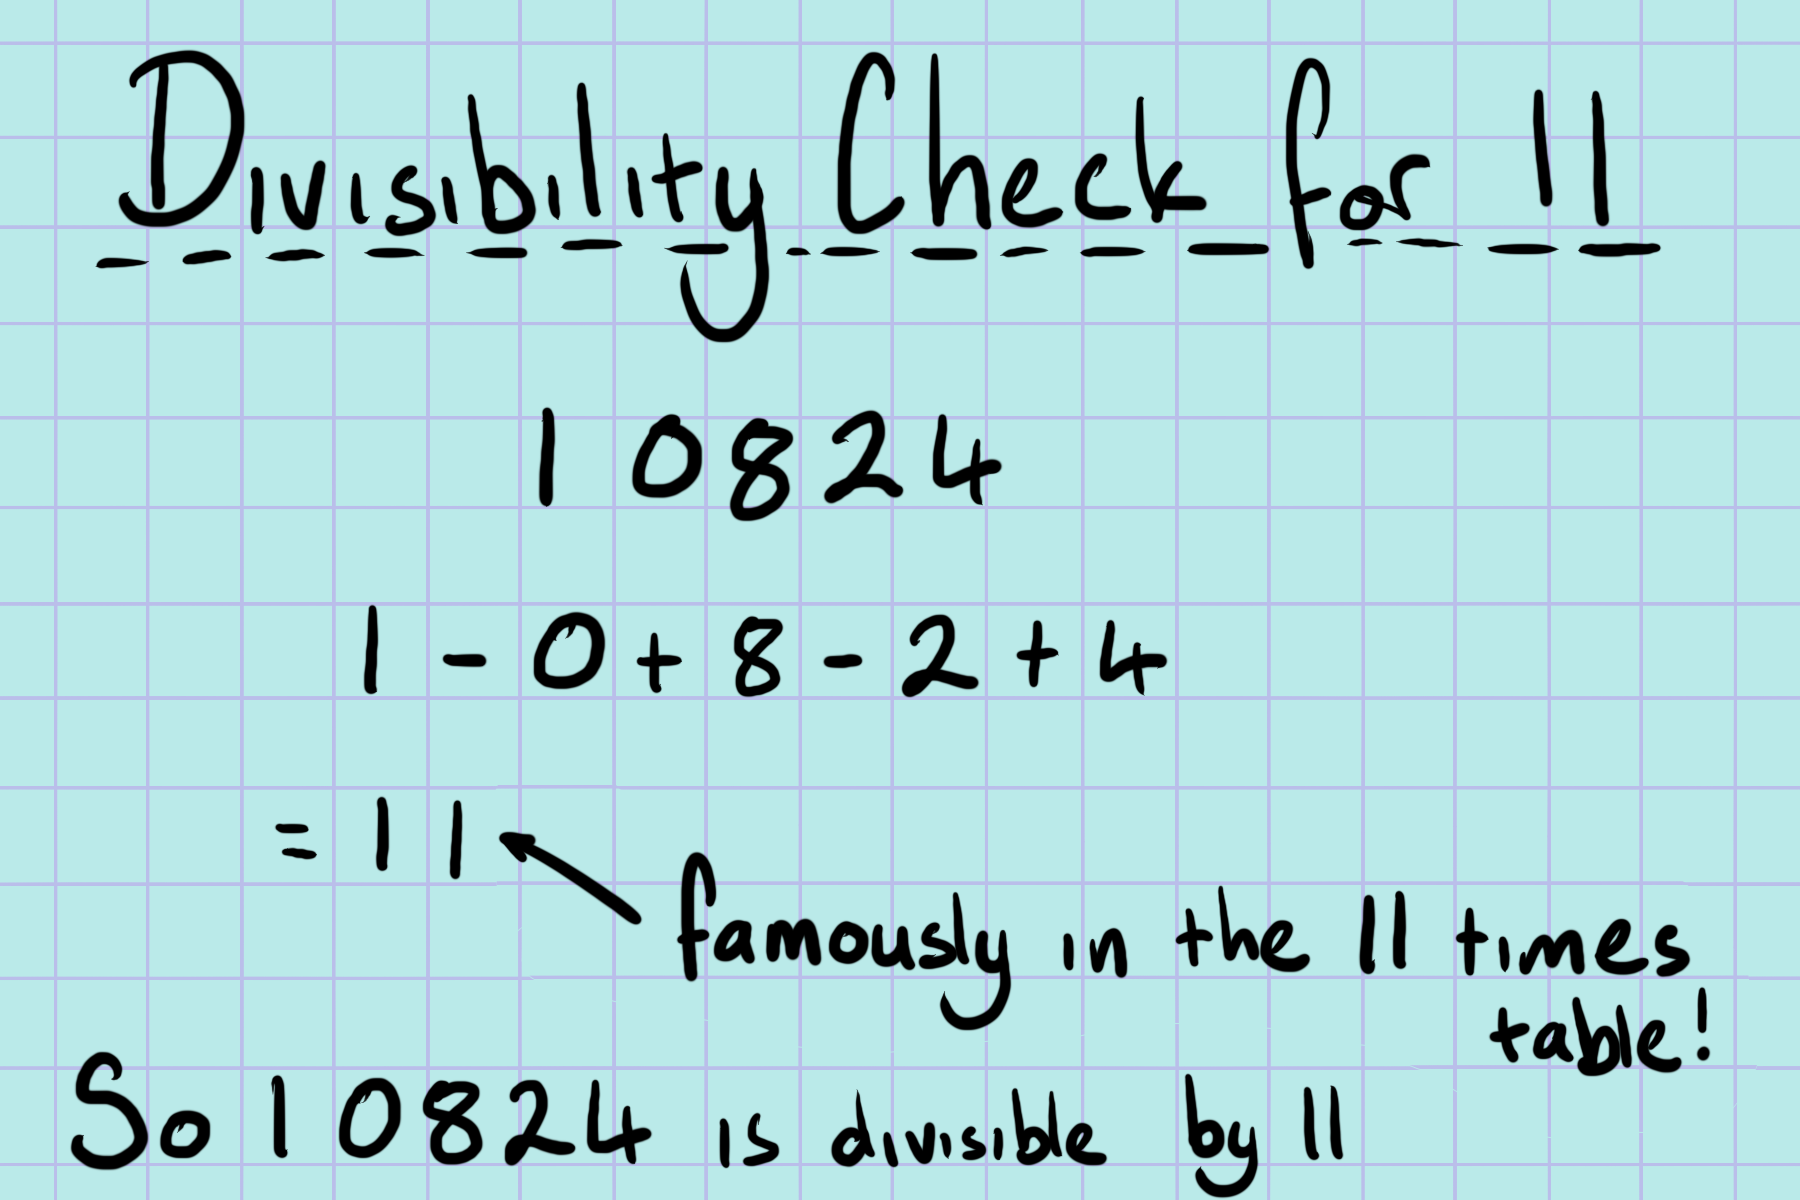 Divisibility Check for 11
10824
1 - 0 + 8 - 2 + 4
= 11
famously in the 11 times
table!
So 10824 is divisible by 11